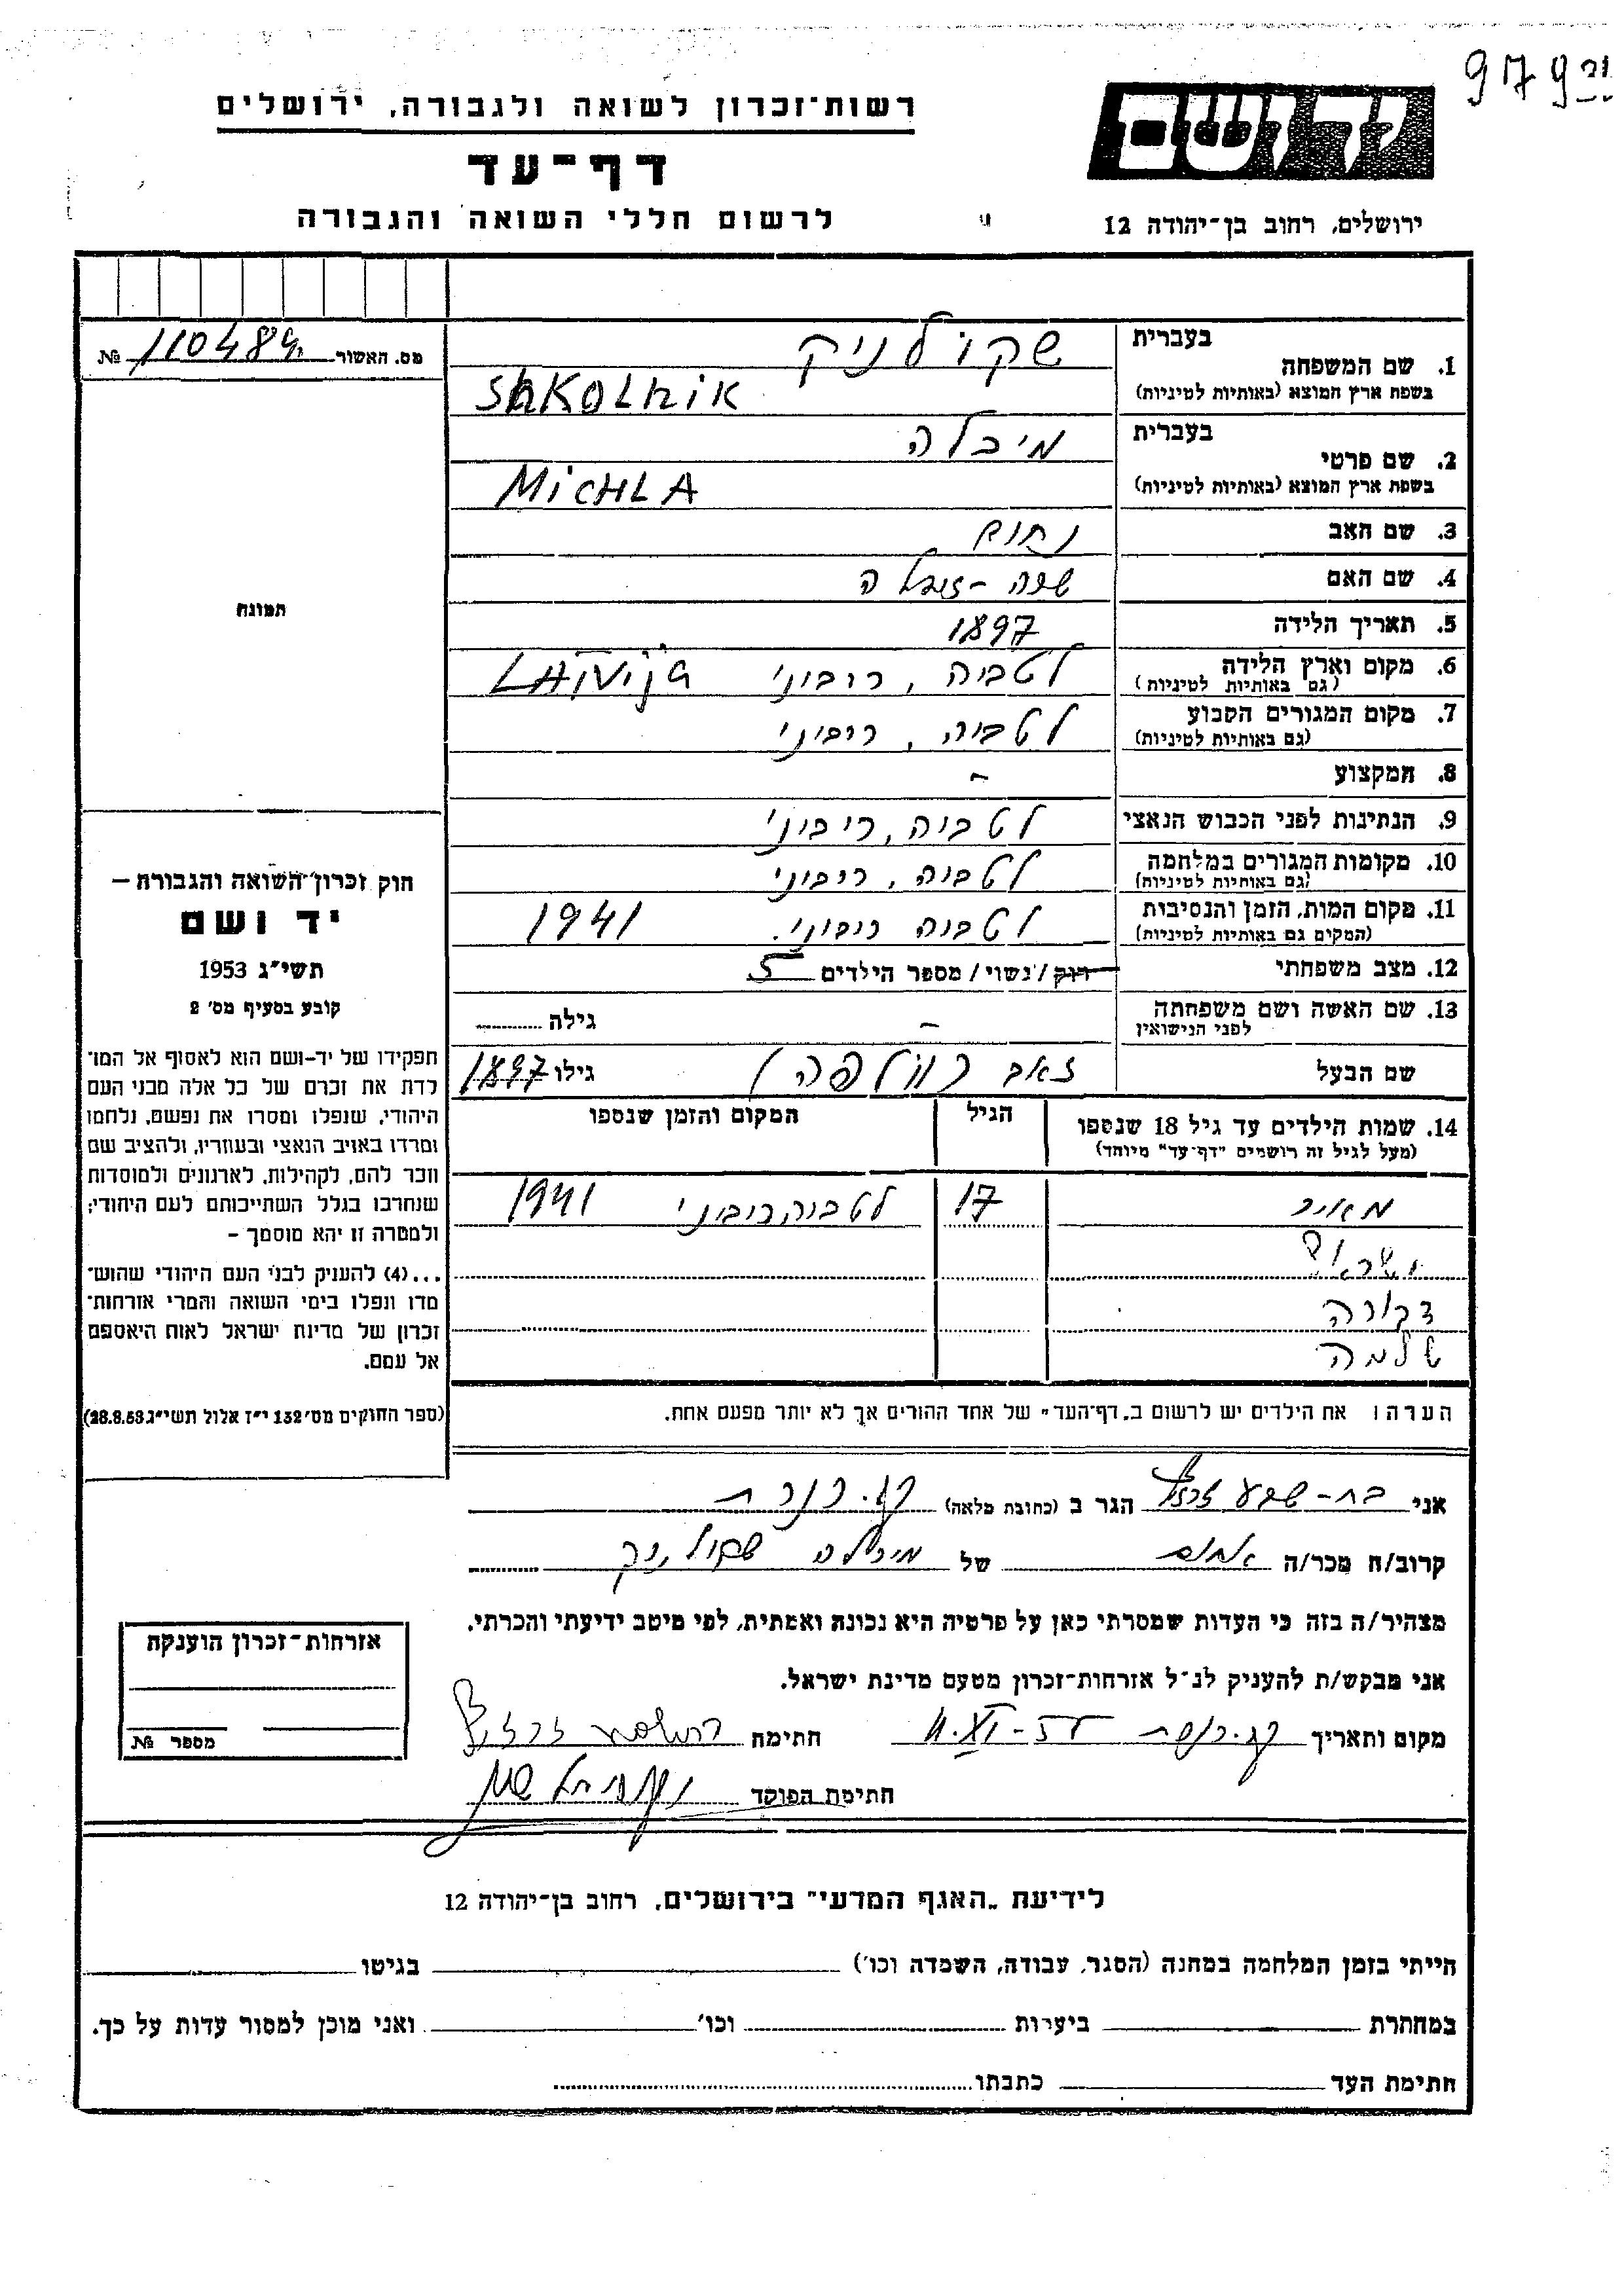 979
יד ושם
רשות-זכרון לשואה ולגבורה, ירושלים
דף-עד
לרשום חללי השואה והגבורה
ירושלים, רחוב בן-יהודה 12
מס. האשור № 110484
1. שם המשפחה בעברית שקולניק
בשפת ארץ המוצא (באותיות לטיניות) SHKOLNIK
2. שם פרטי בעברית מיכלה
בשפת ארץ המוצא (באותיות לטיניות) MICHLA
3. שם האב נחום
4. שם האם
5. תאריך הלידה 1897
6. מקום וארץ הלידה לטביה, ריבוני LATVIJA
(גם באותיות לטיניות)
7. מקום המגורים הקבוע לטביה, ריבוני
(גם באותיות לטיניות)
8. המקצוע –
9. הנתינות לפני הכבוש הנאצי לטביה, ריבוני
10. מקומות המגורים במלחמה לטביה, ריבוני
(גם באותיות לטיניות)
11. מקום המות, הזמן והנסיבות לטביה ריבוני. 1941
(המקום גם באותיות לטיניות)
12. מצב משפחתי רווק/נשוי/מספר הילדים 5
13. שם האשה ושם משפחתה – גילה
לפני הנישואין
שם הבעל זאב גילו 1897
14. שמות הילדים עד גיל 18 שנספו הגיל המקום והזמן שנספו
(מעל לגיל זה רושמים "דף-עד" מיוחד)
מאיר 17 לטביה, ריבוני 1941
ישראל
דבורה
שלמה
הערה: את הילדים יש לרשום ב"דף-העד" של אחד ההורים אך לא יותר מפעם אחת.
תמונה
חוק זכרון השואה והגבורה —
יד ושם
תשי"ג 1953
קובע בסעיף מס' 2
תפקידו של יד-ושם הוא לאסוף אל המו־
לדת את זכרם של כל אלה מבני העם
היהודי, שנפלו ומסרו את נפשם, נלחמו
ומרדו באויב הנאצי ובעוזריו, ולהציב שם
וזכר להם, לקהילות, לארגונים ולמוסדות
שנחרבו בגלל השתייכותם לעם היהודי;
ולמטרה זו יהא מוסמך –
...(4) להעניק לבני העם היהודי שהוש־
מדו ונפלו בימי השואה והמרי אזרחות־
זכרון של מדינת ישראל לאות היאספם
אל עמם.
(ספר החוקים מס' 132 י"ז אלול תשי"ג 28.8.53)
אני בת-שבע הגר ב (כתובת מלאה) קב. כנרת
קרוב/ה מכר/ה אחות של מיכלה שקולניק
מצהיר/ה בזה כי העדות שמסרתי כאן על פרטיה היא נכונה ואמתית, לפי מיטב ידיעתי והכרתי.
אני מבקש/ת להעניק לנ"ל אזרחות-זכרון מטעם מדינת ישראל.
מקום ותאריך קב. כנרת חתימה
חתימת הפוקד
אזרחות-זכרון הוענקה
מספר №
לידיעת "האגף המדעי" בירושלים, רחוב בן-יהודה 12
הייתי בזמן המלחמה במחנה (הסגר, עבודה, השמדה וכו') בגיטו
במחתרת ביערות וכו' ואני מוכן למסור עדות על כך.
חתימת העד כתבתו